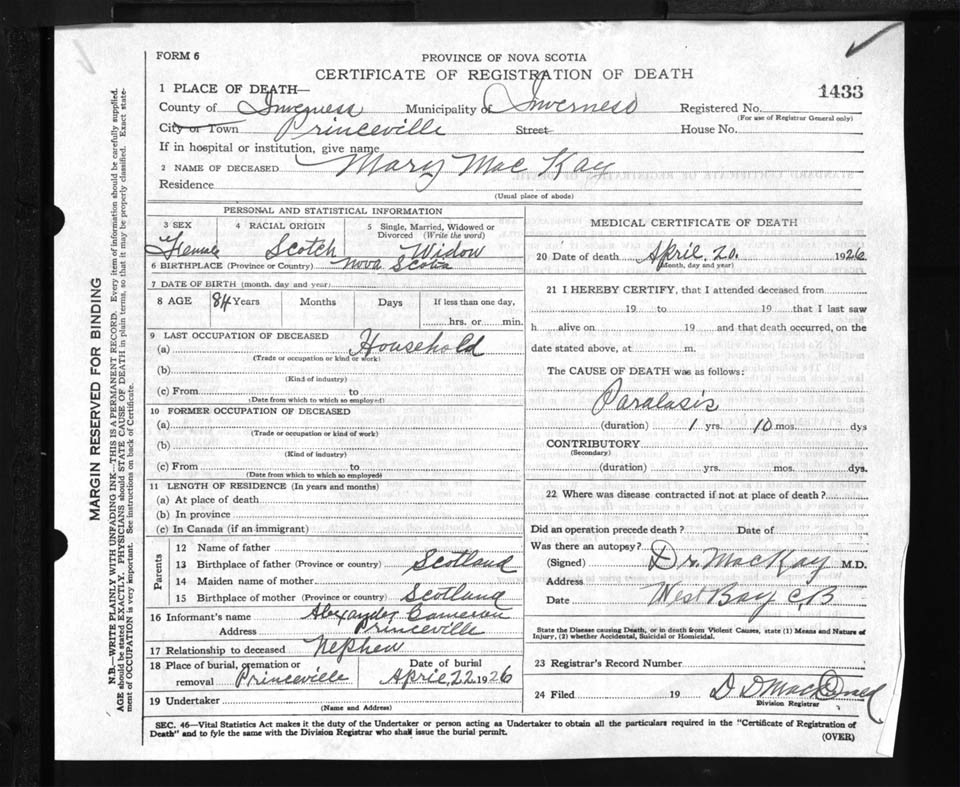 FORM 6
PROVINCE OF NOVA SCOTIA
CERTIFICATE OF REGISTRATION OF DEATH
1433
1 PLACE OF DEATH—
County of Inverness Municipality of Inverness Registered No.
(For use of Registrar General only)
City or Town Princeville Street House No.
If in hospital or institution, give name
2 NAME OF DECEASED Mary MacKay
Residence
(Usual place of abode)
PERSONAL AND STATISTICAL INFORMATION
3 SEX Female
4 RACIAL ORIGIN Scotch
5 Single, Married, Widowed or Divorced (Write the word) Widow
6 BIRTHPLACE (Province or Country) Nova Scotia
7 DATE OF BIRTH (month, day and year)
8 AGE 84 Years Months Days If less than one day,
hrs. or min.
9 LAST OCCUPATION OF DECEASED
(a) Household
(Trade or occupation or kind or work)
(b)
(Kind of industry)
(c) From to
(Date from which to which so employed)
10 FORMER OCCUPATION OF DECEASED
(a)
(Trade or occupation or kind of work)
(b)
(Kind of industry)
(c) From to
(Date from which to which so employed)
11 LENGTH OF RESIDENCE (In years and months)
(a) At place of death
(b) In province
(c) In Canada (if an immigrant)
Parents
12 Name of father
13 Birthplace of father (Province or country) Scotland
14 Maiden name of mother
15 Birthplace of mother (Province or country) Scotland
16 Informant's name Alexander Cameron
Address Princeville
17 Relationship to deceased Nephew
18 Place of burial, cremation or removal Princeville
Date of burial April, 22 1926
19 Undertaker
(Name and Address)
MEDICAL CERTIFICATE OF DEATH
20 Date of death April, 20. 1926
(Month, day and year)
21 I HEREBY CERTIFY, that I attended deceased from
19 to 19 that I last saw
h alive on 19 and that death occurred, on the
date stated above, at m.
The CAUSE OF DEATH was as follows:
Paralasis
(duration) 1 yrs. 10 mos. dys
CONTRIBUTORY
(Secondary)
(duration) yrs. mos. dys.
22 Where was disease contracted if not at place of death?
Did an operation precede death? Date of
Was there an autopsy?
(Signed) Dr. MacKay M.D.
Address
Date West Bay C,B
State the Disease causing Death, or in death from Violent Causes, state (1) Means and Nature of
Injury, (2) whether Accidental, Suicidal or Homicidal.
23 Registrar's Record Number
24 Filed 19 D D MacDonald
Division Registrar
SEC. 46—Vital Statistics Act makes it the duty of the Undertaker or person acting as Undertaker to obtain all the particulars required in the "Certificate of Registration of
Death" and to fyle the same with the Division Registrar who shall issue the burial permit.
(OVER)
MARGIN RESERVED FOR BINDING
N.B.—WRITE PLAINLY WITH UNFADING INK—THIS IS A PERMANENT RECORD. Every item of information should be carefully supplied.
AGE should be stated EXACTLY. PHYSICIANS should STATE CAUSE OF DEATH in plain terms, so that it may be properly classified. Exact state-
ment of OCCUPATION is very important. See instructions on back of Certificate.